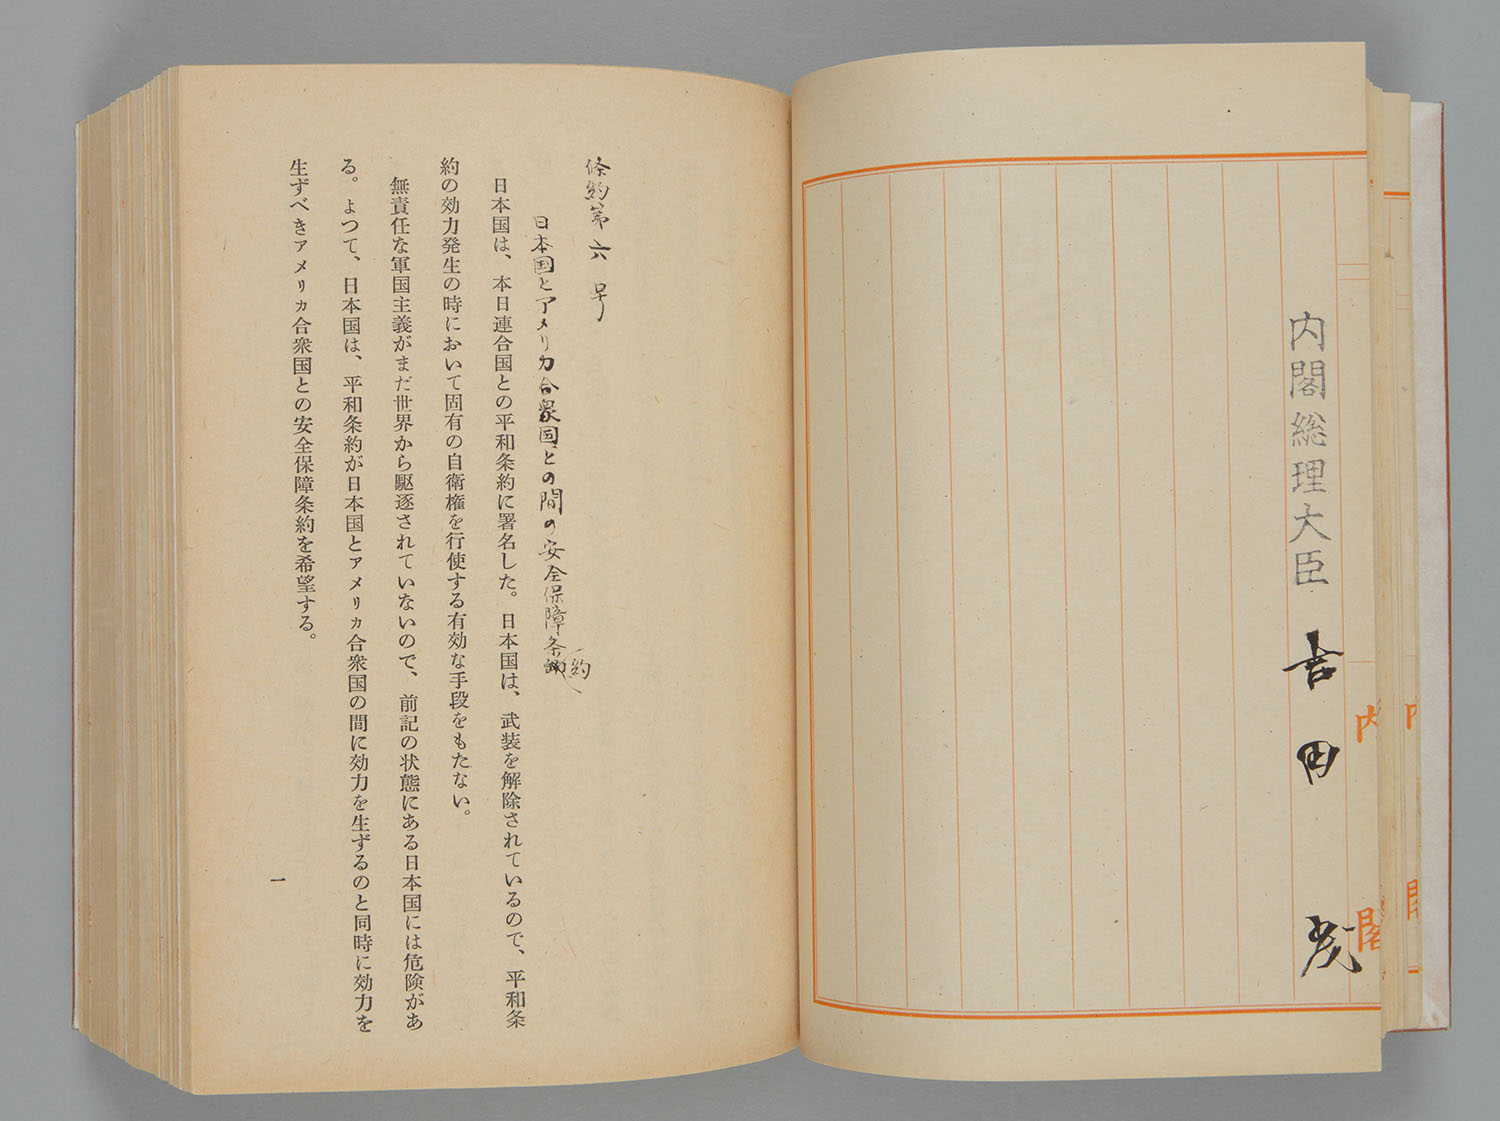 内閣総理大臣 吉田茂
内閣
内閣
條約第六号
日本国とアメリカ合衆国との間の安全保障条約
日本国は、本日連合国との平和条約に署名した。日本国は、武装を解除されているので、平和条
約の効力発生の時において固有の自衛権を行使する有効な手段をもたない。
無責任な軍国主義がまだ世界から駆逐されていないので、前記の状態にある日本国には危険があ
る。よつて、日本国は、平和条約が日本国とアメリカ合衆国の間に効力を生ずるのと同時に効力を
生ずべきアメリカ合衆国との安全保障条約を希望する。
一